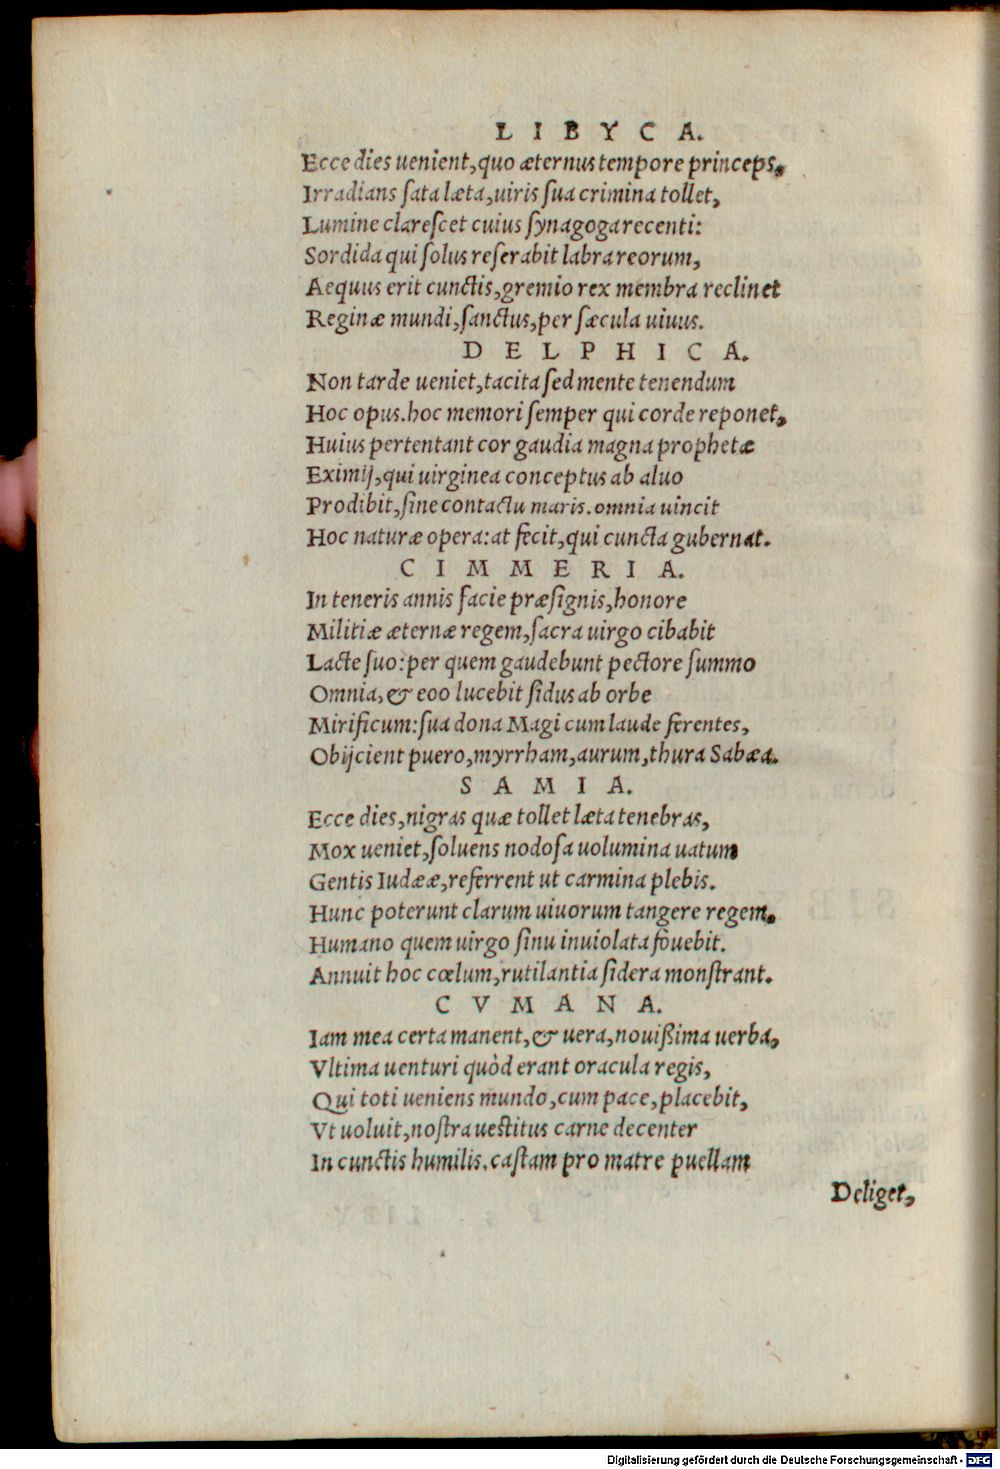 LIBYCA.
Ecce dies uenient, quo æternus tempore princeps,
Irradians sata læta, uiris sua crimina tollet,
Lumine clarescet cuius synagoga recenti:
Sordida qui solus reserabit labra reorum,
Aequus erit cunctis, gremio rex membra reclinet
Reginæ mundi, sanctus, per sæcula uiuus.
DELPHICA.
Non tarde ueniet, tacita sed mente tenendum
Hoc opus. hoc memori semper qui corde reponet,
Huius pertentant cor gaudia magna prophetæ
Eximij, qui uirginea conceptus ab aluo
Prodibit, sine contactu maris. omnia uincit
Hoc naturæ opera: at fecit, qui cuncta gubernat.
CIMMERIA.
In teneris annis facie præsignis, honore
Militiæ æternæ regem, sacra uirgo cibabit
Lacte suo: per quem gaudebunt pectore summo
Omnia, & eoo lucebit sidus ab orbe
Mirificum: sua dona Magi cum laude ferentes,
Obijcient puero, myrrham, aurum, thura Sabæa.
SAMIA.
Ecce dies, nigras quæ tollet læta tenebras,
Mox ueniet, soluens nodosa uolumina uatum
Gentis Iudææ, referrent ut carmina plebis.
Hunc poterunt clarum uiuorum tangere regem,
Humano quem uirgo sinu inuiolata fouebit.
Annuit hoc cœlum, rutilantia sidera monstrant.
CVMANA.
Iam mea certa manent, & uera, nouißima uerba,
Vltima uenturi quòd erant oracula regis,
Qui toti ueniens mundo, cum pace, placebit,
Vt uoluit, nostra uestitus carne decenter
In cunctis humilis. castam pro matre puellam
Deliget,
Digitalisierung gefördert durch die Deutsche Forschungsgemeinschaft - DFG